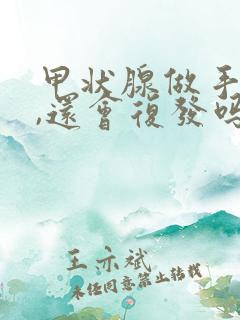 甲状腺做手
,還會復發嗎
王亦斌
未经同意禁止转载